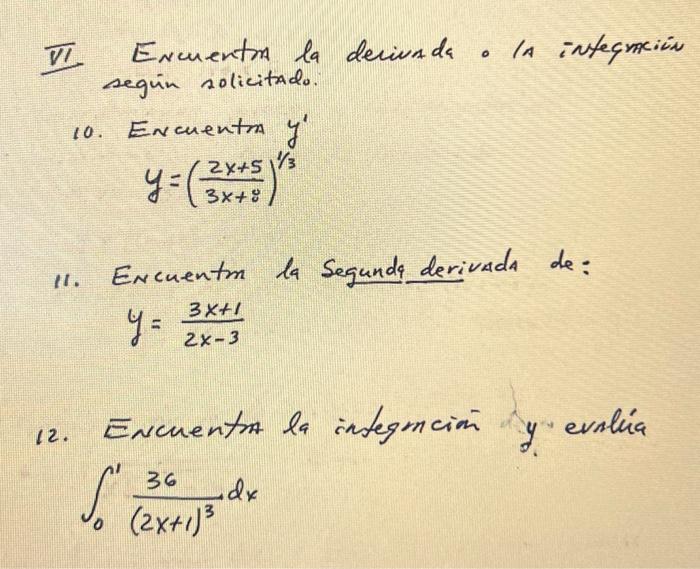 VI Encuentra la derivada o la integración
según solicitado.
10. Encuentra y'
y = ( (2x+5)/(3x+8) )^1/3
11. Encuentra la Segunda derivada de:
y = (3x+1)/(2x-3)
12. Encuentra la integración y evalúa
∫₀¹ 36/(2x+1)³ dx